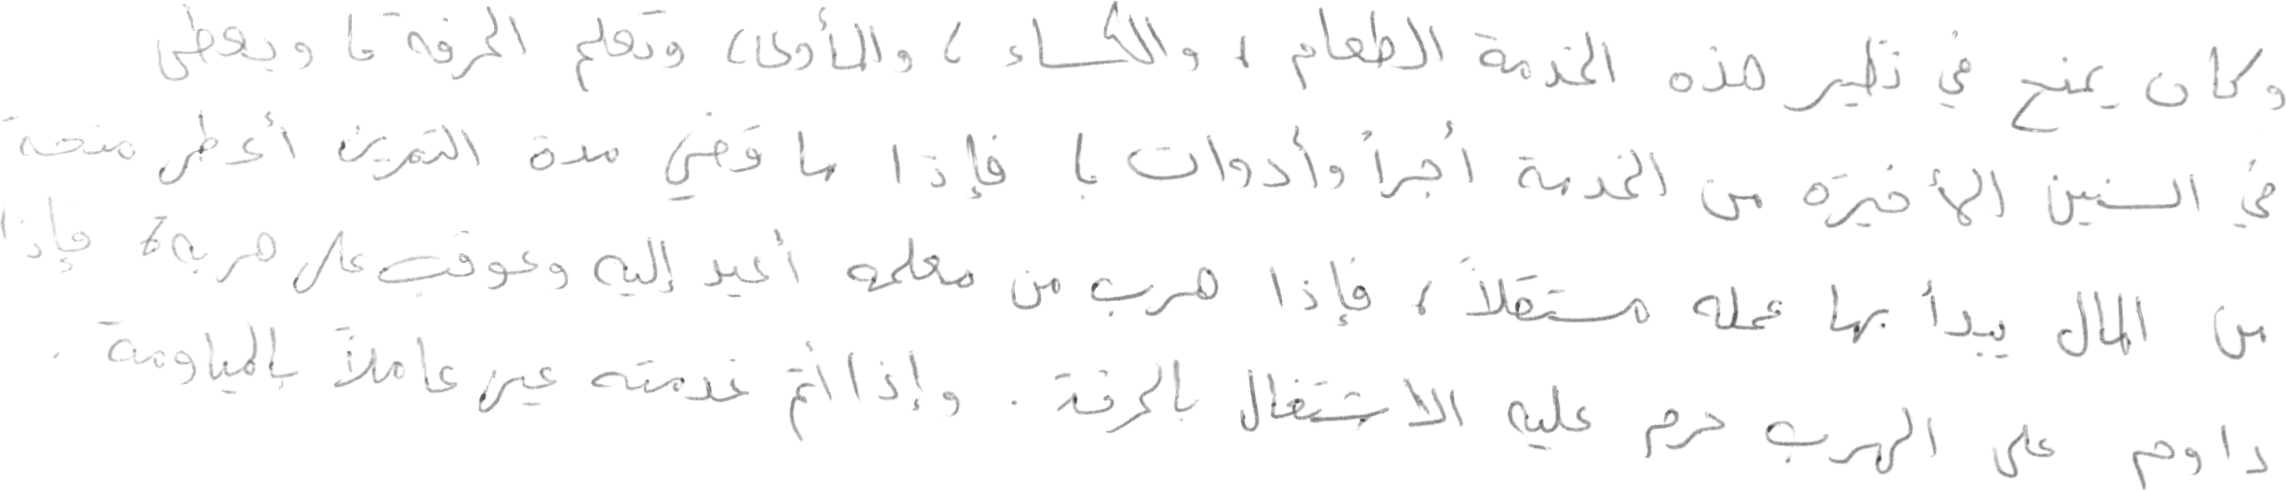 وكان يمنح في نظير هذه الخدمة الطعام ، والكساء ، والمأوى، وتعلم الحرفة ، ويعطى
في السنين الأخيرة من الخدمة أجراً وأدوات ، فإذا ما قضي مدة التمرين أعطى منحة
من المال يبدأ بها عمله مستقلاً ، فإذا هرب من معلمه أعيد إليه وعوقب على هربه ، فإذا
داوم على الهرب حرم عليه الاشتغال بالحرفة . وإذا أتم خدمته عين عاملاً بالمياومة .